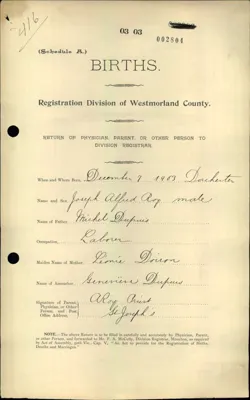 416
03 03
002804
(Schedule A.)
BIRTHS.
Registration Division of Westmorland County.
RETURN OF PHYSICIAN, PARENT, OR OTHER PERSON TO
DIVISION REGISTRAR.
When and Where Born, December 9 1903 Dorchester
Name and Sex, Joseph Alfred Roy male
Name of Father, Michel Dupuis
Occupation, Laborer
Maiden Name of Mother,
Name of Informant, Genevieve Dupuis
Signature of Parent,
Physician, or Other
Person, and Post
Office Address,
A Roy Priest
St Joseph's
NOTE.—The above Return is to be filled in carefully and accurately by Physician, Parent,
or other Person, and forwarded to Division Registrar, Moncton, as required
by Act of Assembly, "An Act to provide for the Registration of Births,
Deaths and Marriages."